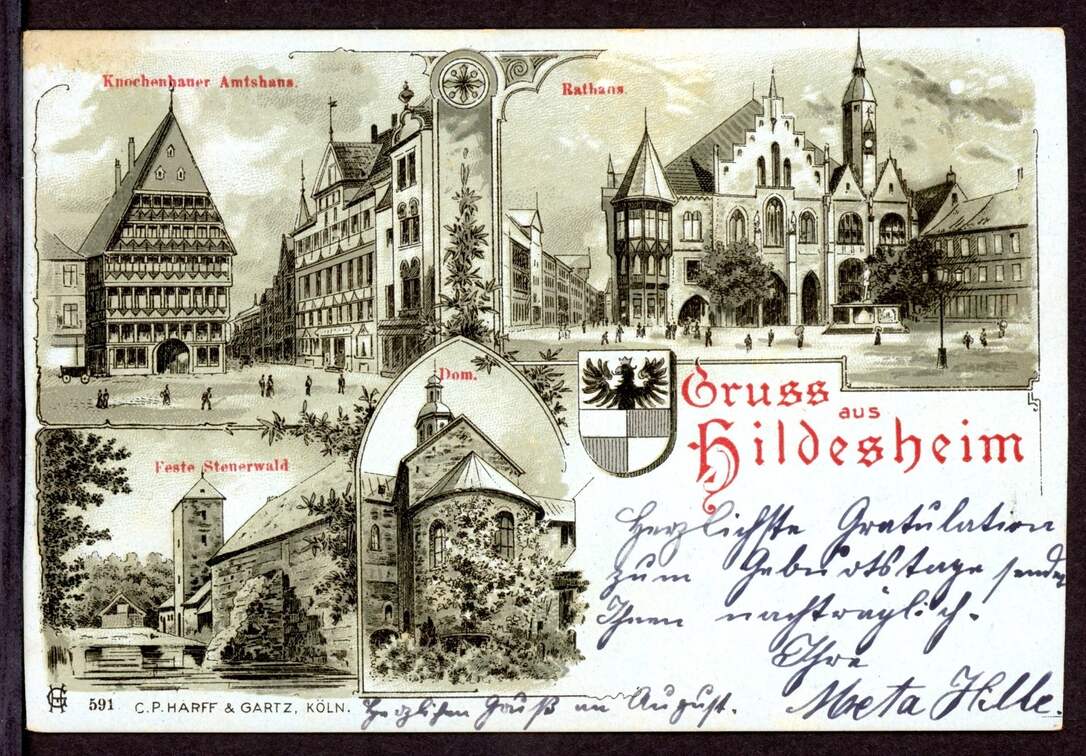 Knochenhauer Amtshaus.
Rathaus.
Dom.
Feste Steuerwald
Gruss
aus
Hildesheim
Herzlichste Gratulation
zum Geburtstage sendet
Ihnen nachträglich.
Ihre
Meta Hille.
Herzlichen Gruß an August.
591 C.P. HARFF & GARTZ, KÖLN.